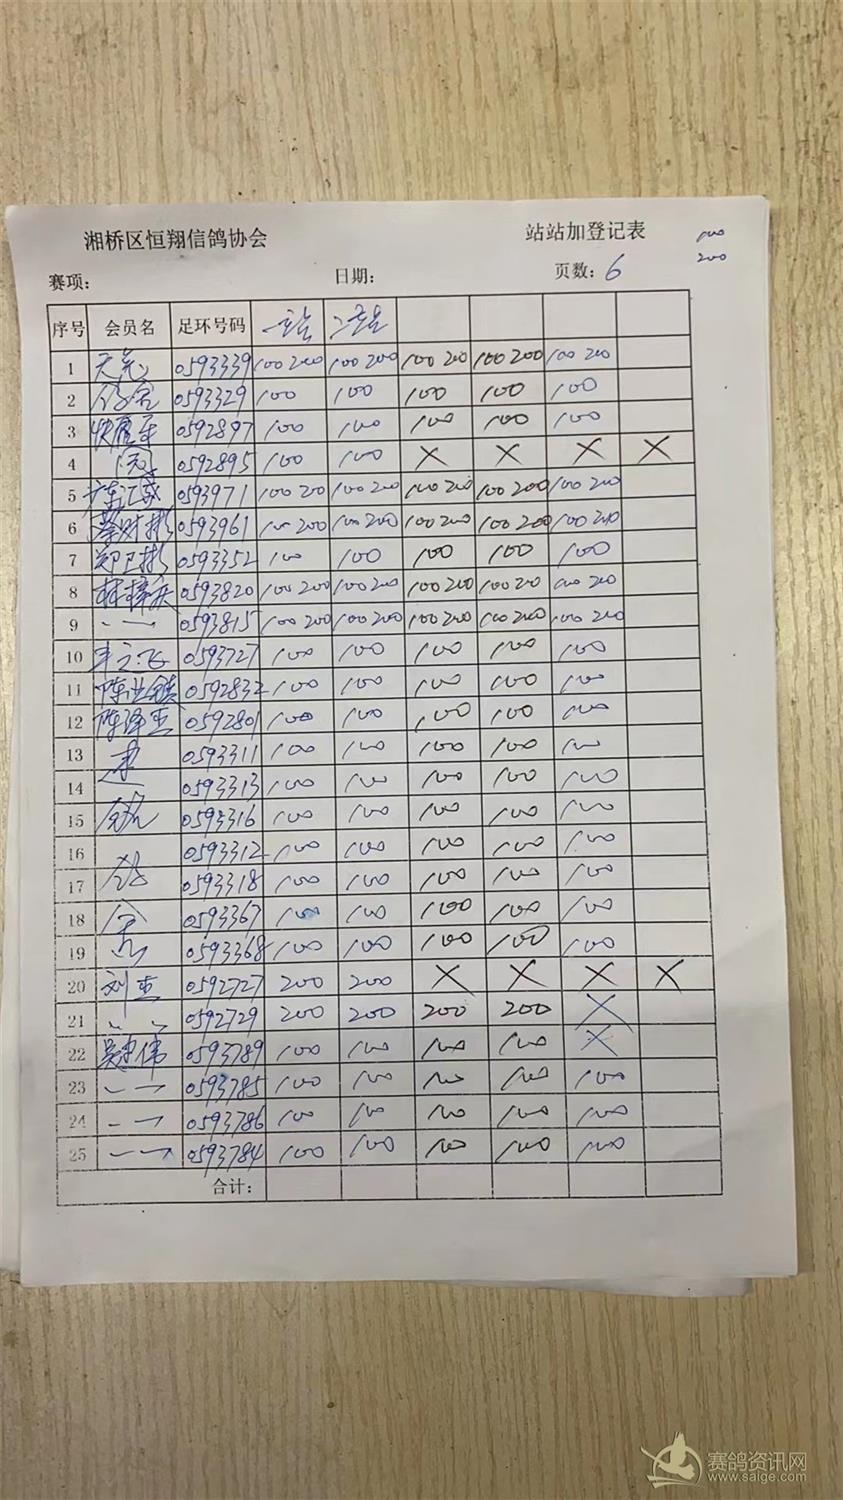 湘桥区恒翔信鸽协会 站站加登记表 100
200
赛项: 日期: 页数: 6
序号 会员名 足环号码 一站 二站
1 0593339 100 200 100 200 100 200 100 200 100 200
2 0593329 100 100 100 100 100
3 快鹰车 0592897 100 100 100 100 100
4 0592895 100 100 X X X X
5 广东汇威 0593971 100 200 100 200 100 200 100 200 100 200
6 蔡财彬 0593961 100 200 100 200 100 200 100 200 100 200
7 郑卫彬 0593352 100 100 100 100 100
8 0593820 100 200 100 200 100 200 100 200 100 200
9 0593815 100 200 100 200 100 200 100 200 100 200
10 0593727 100 100 100 100 100
11 陈洪镇 0592832 100 100 100 100 100
12 陈泽生 0592801 100 100 100 100 100
13 0593311 100 100 100 100 100
14 0593313 100 100 100 100 100
15 0593316 100 100 100 100 100
16 0593312 100 100 100 100 100
17 0593318 100 100 100 100 100
18 0593367 100 100 100 100 100
19 0593368 100 100 100 100 100
20 刘 0592727 200 200 X X X X
21 0592729 200 200 200 200 X
22 伟 0593789 100 100 100 100 X
23 0593785 100 100 100 100 100
24 0593786 100 100 100 100 100
25 0593784 100 100 100 100 100
合计:
赛鸽资讯网
www.saige.com